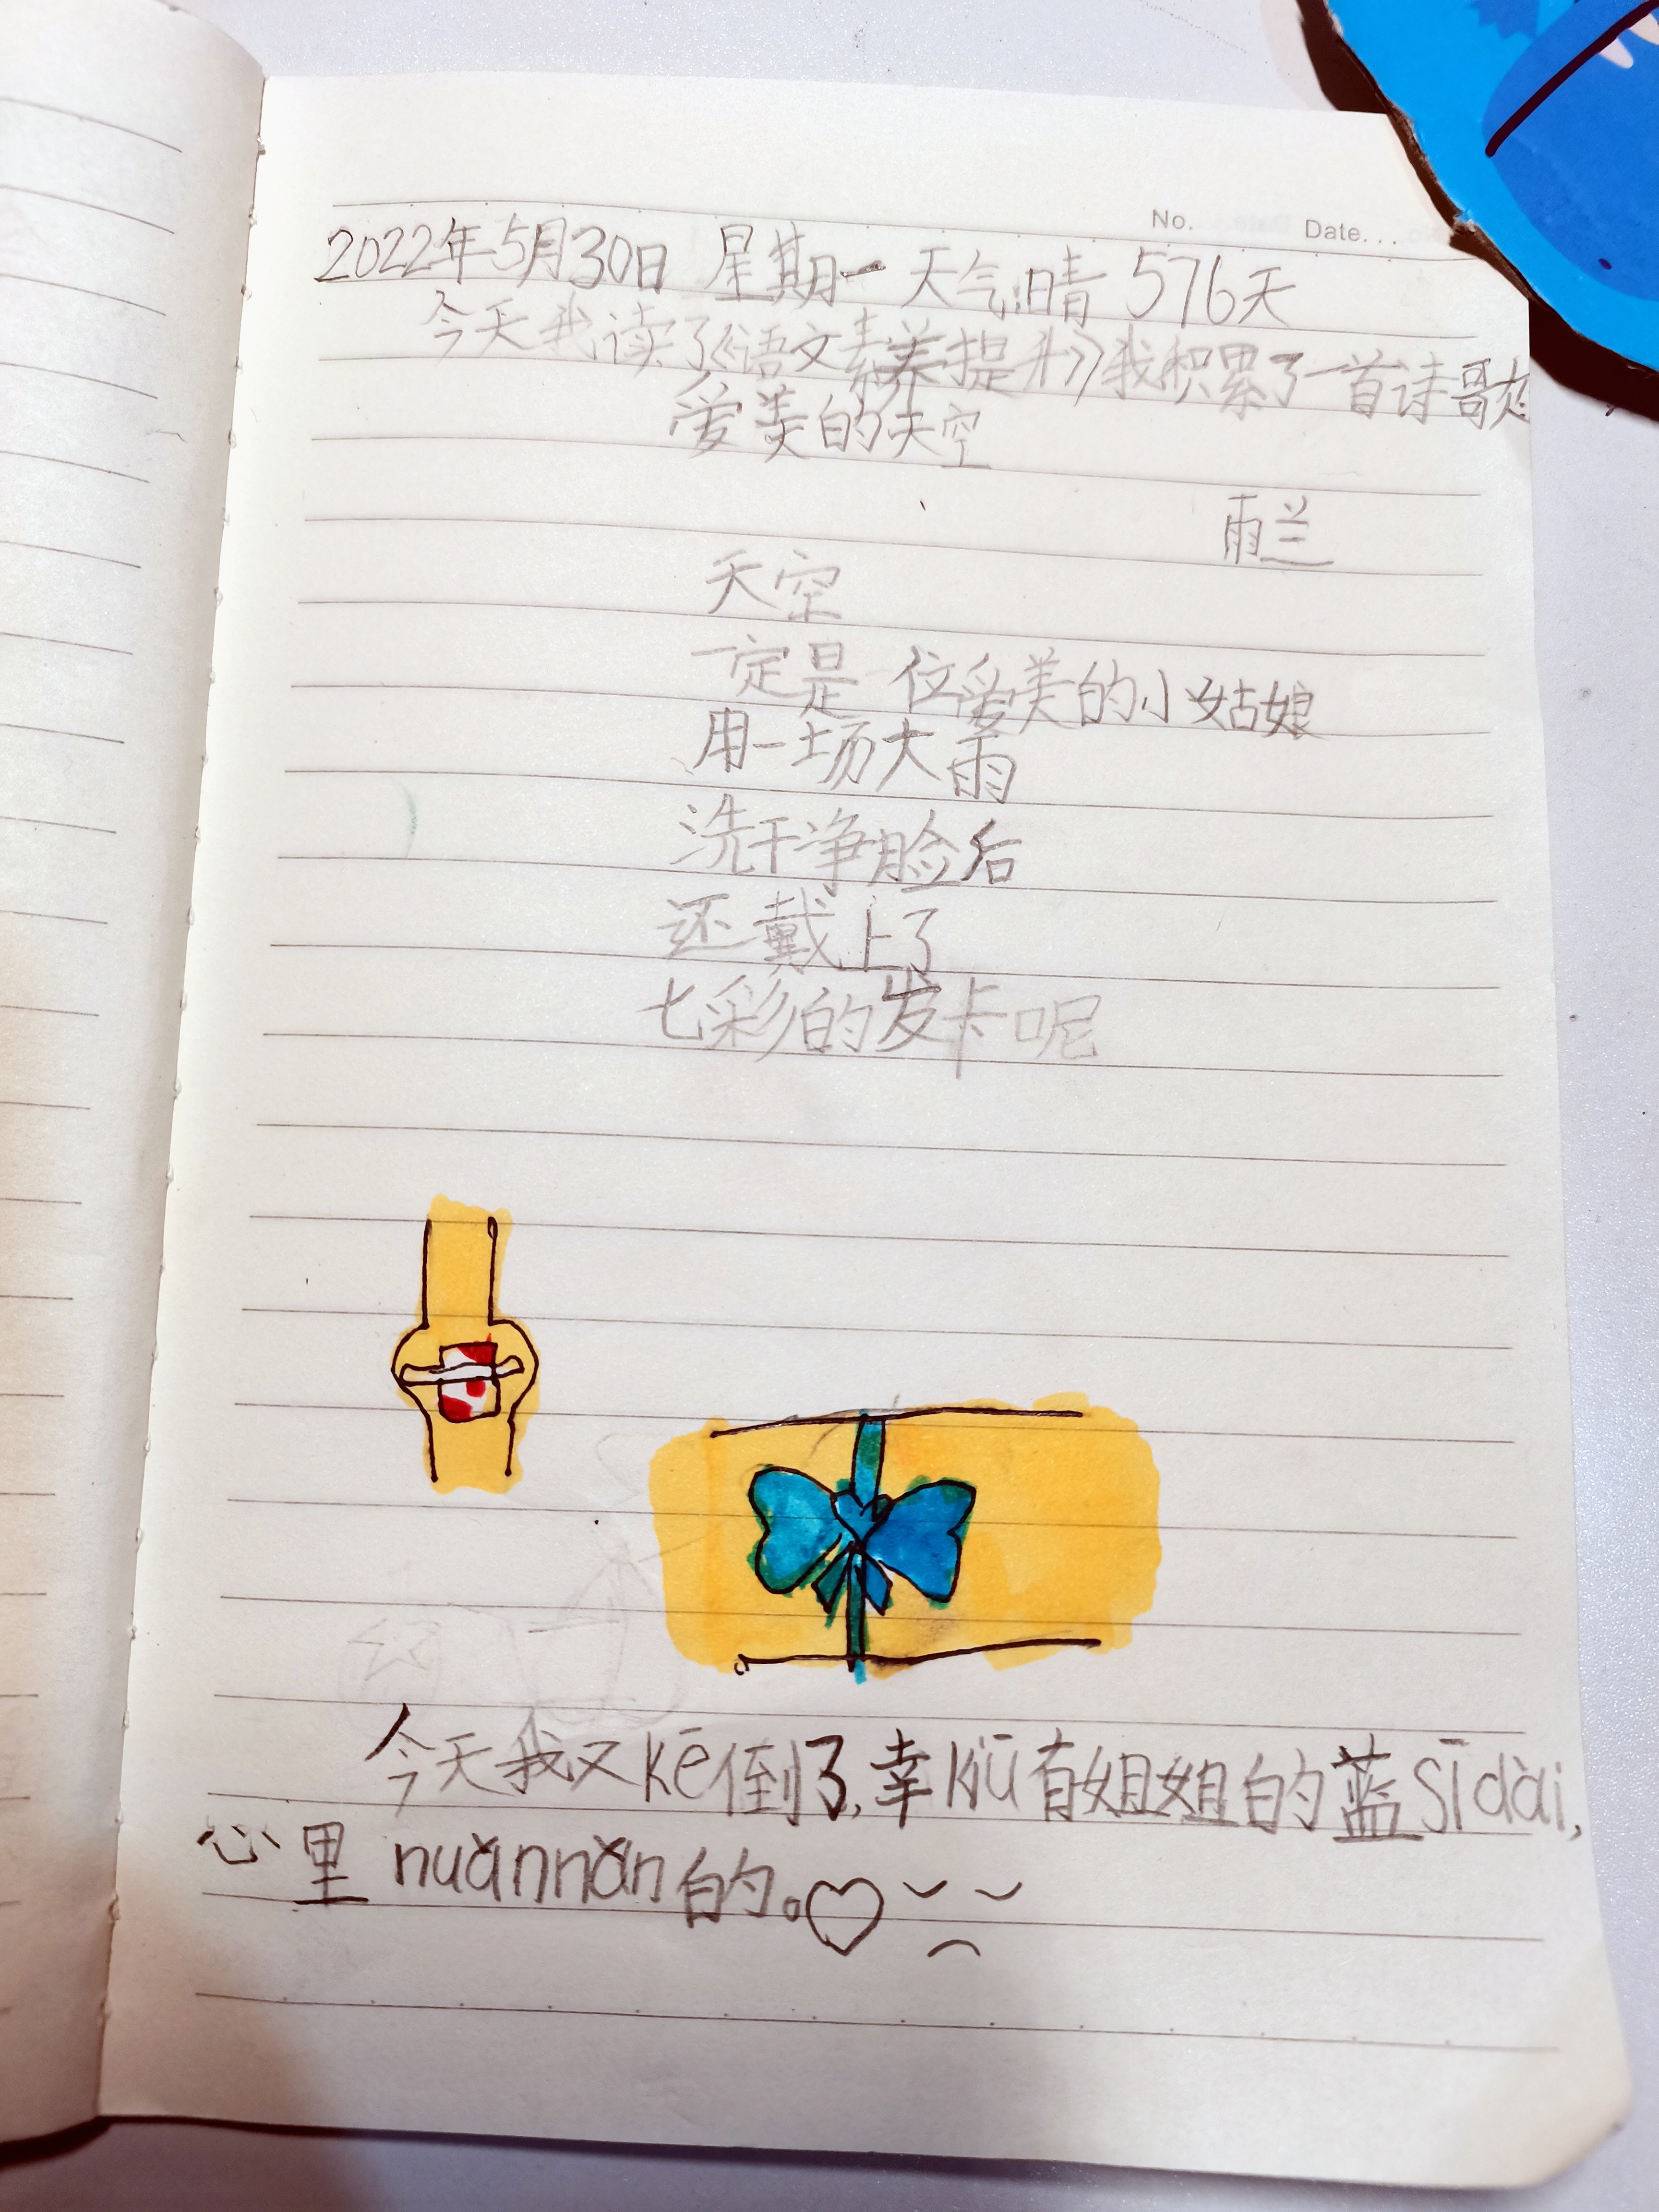 No. Date...
2022年5月30日 星期一 天气:晴 576天
今天我读了《语文素养提升》我积累了一首诗歌
爱美的天空
雨兰
天空
一定是一位爱美的小姑娘
用一场大雨
洗干净脸后
还戴上了
七彩的发卡呢
今天我又kē倒了,幸kuī有姐姐的蓝sīdài,
心里nuǎnnǎn的。